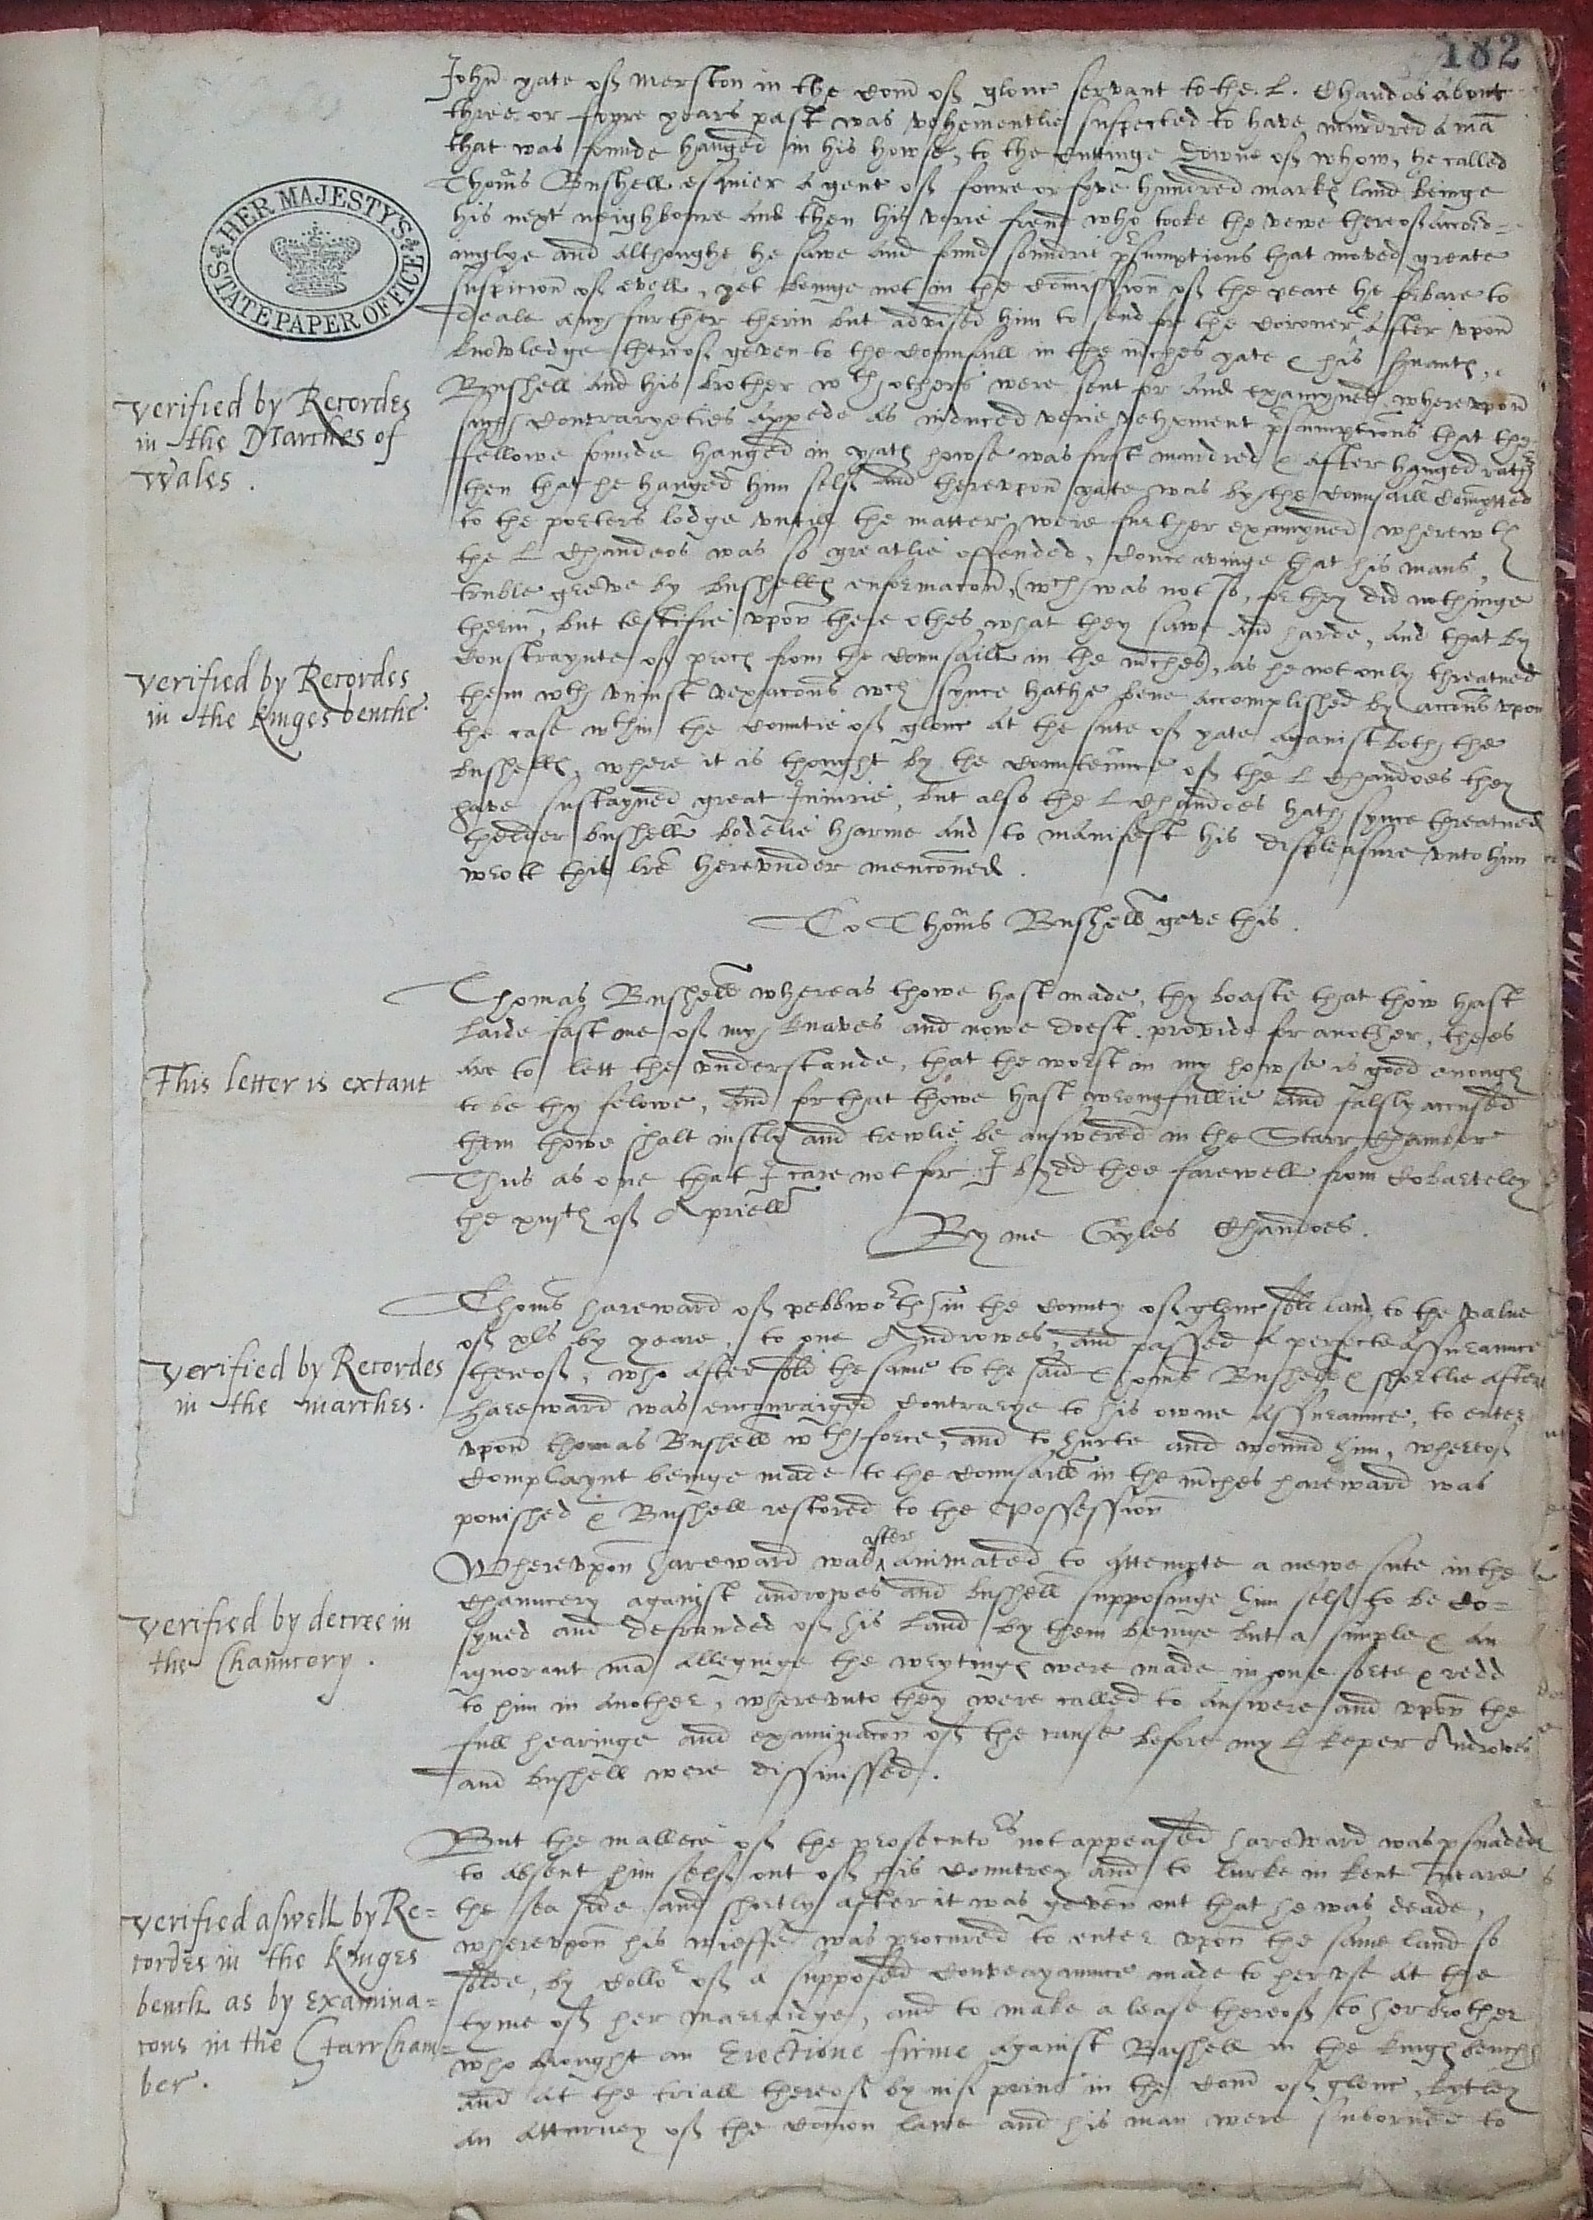 182
John yate of Merston in the Com̃ of glouc servant to the L. Chandos about
three or foyre years past was vehementlie suspected to have murdred a mã
that was founde hanged in his howse, to the cuttinge downe of whom, he called
Thom̃s Bushell esquier a gent of foure or fyve hundred markꝭ land beinge
his next neighboure and then his verie frend who tooke the vewe thereof accord=
inglye and althoughe he sawe and found soundrie p̱sumptions that moved greate
suspicion̄ of evell, yet beinge not in the com̃ission̄ of the peace he forbare to
deale any further therin but advised him to send for the Coroner after vpon̄
knowledge thereof geven to the Counsaill in the m̃ches yate & his s̃vantꝭ,
Bushell and his brother wth others were sent for and examyned wherevpon̄
such contraryeties appede as induced verie vehement p̱sumptions that the
fellowe founde hanged in yatꝭ howse was first murdred & after hanged rathr
then that he hanged him self and therevpon̄ yate was by the Counsaill com̃ytted
to the porters lodge vntill the matter were further examyned wherewth
the L Chandos was so greatlie offended, conceavinge that his mans
truble grewe by bushellꝭ enformacon̄, (wch was not so, for they did nothinge
therin, but testifie vpon̄ there othes what they sawe and harde, and that by
constraynte of proces from the Counsaill in the m̃ches), as he not only threatned
them wth vniust vexacons wch synce hathe bene accomplished by accons vpon
the case wthin the Countie of glouc at the sute of yate against both the
bushellꝭ, where it is thought by the countenñce of the L Chandoes they
have sustayned great Iniurie, but also the L Chandoes hath synce threatned
thelder bushell bodelie harme and to manifest his displeasure vnto him
wrott this lr̃e herevnder menconed.
Verified by Recordes
in the Marches of
Wales.
Verified by Recordes
in the kinges benche.
To Thom̃s Bushell geve this.
Thomas Bushell whereas thowe hast made, thy boaste that thow hast
laide fast one of my knaves and nowe doest provide for another, thees
are to lett the vnderstande, that the worst in my howse is good enough
to be thy felowe, And for that thowe hast wrongfullie and falsly accused
them thowe shalt iustly and trewlie be answered in the Starr Chamber
Thus as one that I care not for I bydd thee farewell from Coberteley
the xiijth of Apriell
By me Gyles Chandoes.
This letter is extant
Thom̃s hareward of pebbworth in the County of glouc sold land to the value
of xls by yeare, to one Androwes, and passed a perfecte assuraunce
thereof, who after sold the same to the said Thom̃s Bushell & shortlie after
hareward was encouraiged contrarye to his owne assuraunce, to enter
vpon̄ thomas Bushell wth force, and to hurte and wound him, whereof
Complaynt beinge made to the Counsaill in the m̃ches hareward was
ponished & Bushell restored to the possession̄
Verified by Recordes
in the marches.
Wherevpon̄ hareward was after animated to attempte a newe sute in the
chauncery against androwes and bushell supposinge him self to be co=
syned and defrauded of his land by them beinge but a simple & an
ignorant mã alleginge the wrytingꝭ were made in one sorte & redd
to him in another, wherevnto they were called to answere and vpon̄ the
full hearinge and examinacon̄ of the cause before my L keper Androwes
and bushell were dissmissed.
Verified by decree in
the Chauncery.
But the mallece of the prosecutors not appeased hareward was p̱suaded
to absent him self out of his Countrey and to lurke in kent neare
the sea side and shortly after it was geven out that he was deade,
wherevpon̄ his wieffe was procured to enter vpon̄ the same land so
solde, by collor of a supposed conveyaunce made to her vse at the
tyme of her marraidge, and to make a lease thereof to her brother
who brought an Erectione firme against Bushell in the kingꝭ bench
and at the triall thereof by nisi prius in the Com̃ of glouc, kytley
an Atturney of the com̃on lawe and his man were subornde to
Verified aswell by Re=
cordes in the kinges
bench as by examina=
cons in the Starr Cham=
ber.
HER MAJESTY'S
STATE PAPER OFFICE